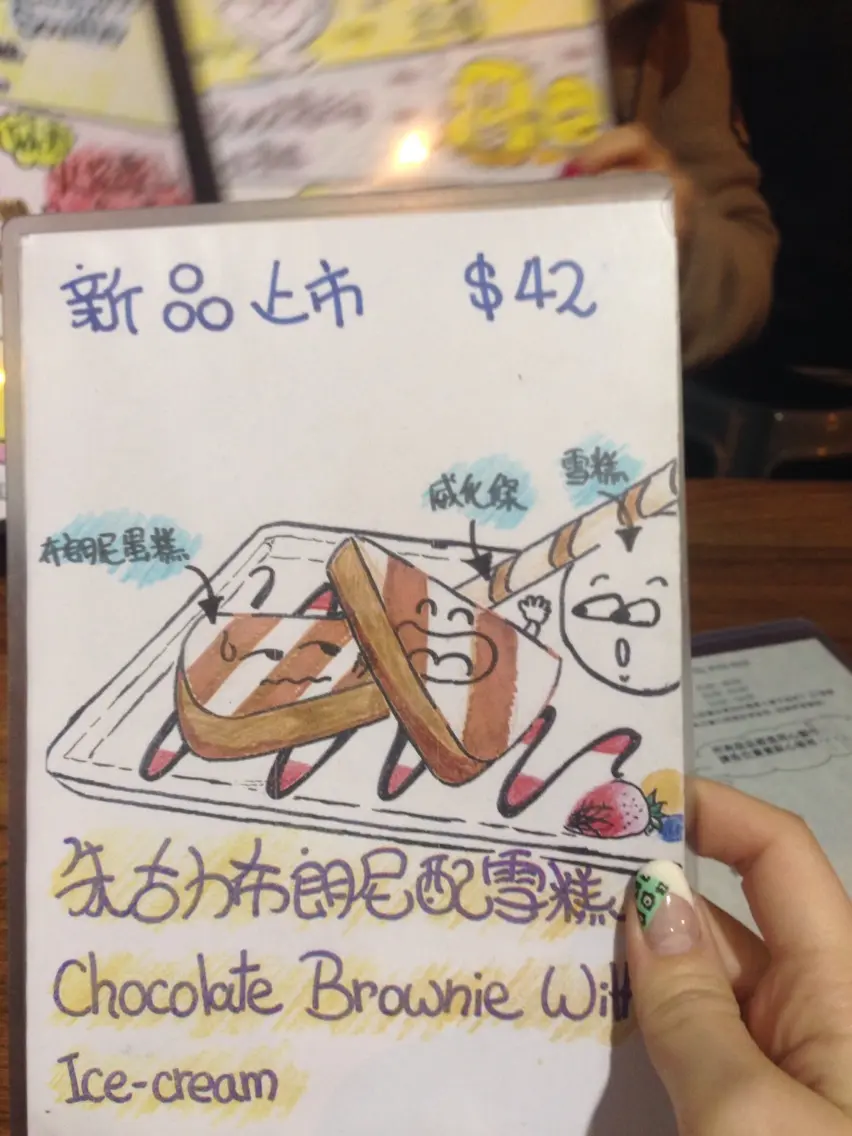 新品上市 $42
雪糕
威化條
布朗尼蛋糕
朱古力布朗尼配雪糕
Chocolate Brownie With
Ice-cream